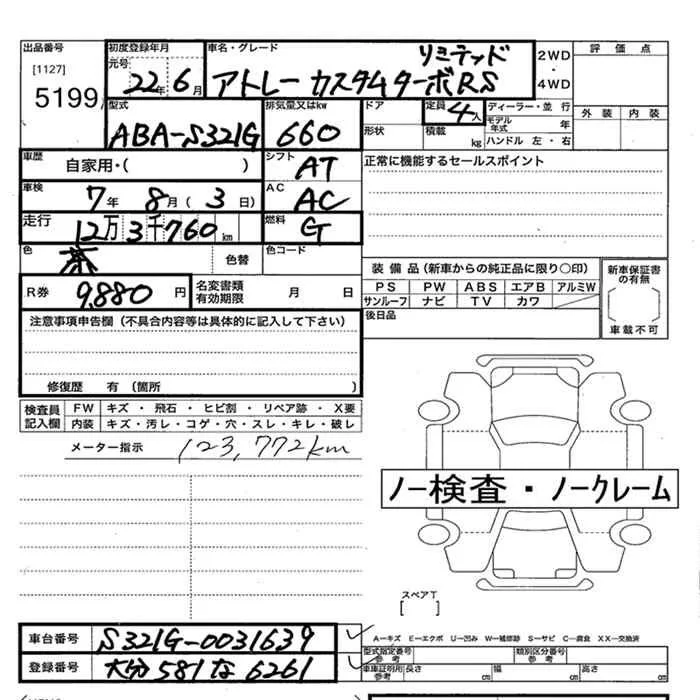 出品番号 初度登録年月 車名・グレード リミテッド 2WD・4WD 評価点
[1127] 元号 22年 6月 アトレー カスタムターボRS
5199 型式 排気量又はkw ドア 定員 4人 ディーラー・並行 外装 内装
ABA-S321G 660 形状 積載 kg モデル年式 年
ハンドル 左・右
車歴 自家用・( ) シフト AT 正常に機能するセールスポイント
車検 7年 8月 ( 3日) AC AC
走行 12万3千760km 燃料 G
色 茶 色替 色コード
R券 9,880円 名変書類有効期限 月 日
装備品(新車からの純正品に限り○印) 新車保証書の有無
PS PW ABS エアB アルミW
サンルーフ ナビ TV カワ
車載不可
注意事項申告欄(不具合内容等は具体的に記入して下さい) 後日品
修復歴 有 (箇所 )
検査員記入欄 FW キズ・飛石・ヒビ割・リペア跡・X要
内装 キズ・汚レ・コゲ・穴・スレ・キレ・破レ
メーター指示 123,772km
ノー検査・ノークレーム
スペアT
[ ]
車台番号 S321G-0031639
A―キズ E―エクボ U―凹み W―補修跡 S―サビ C―腐食 XX―交換済
型式指定番号参考 類別区分番号参考
登録番号 大分 581 な 6261
車車証明用参考 長さ cm 幅 cm 高さ cm